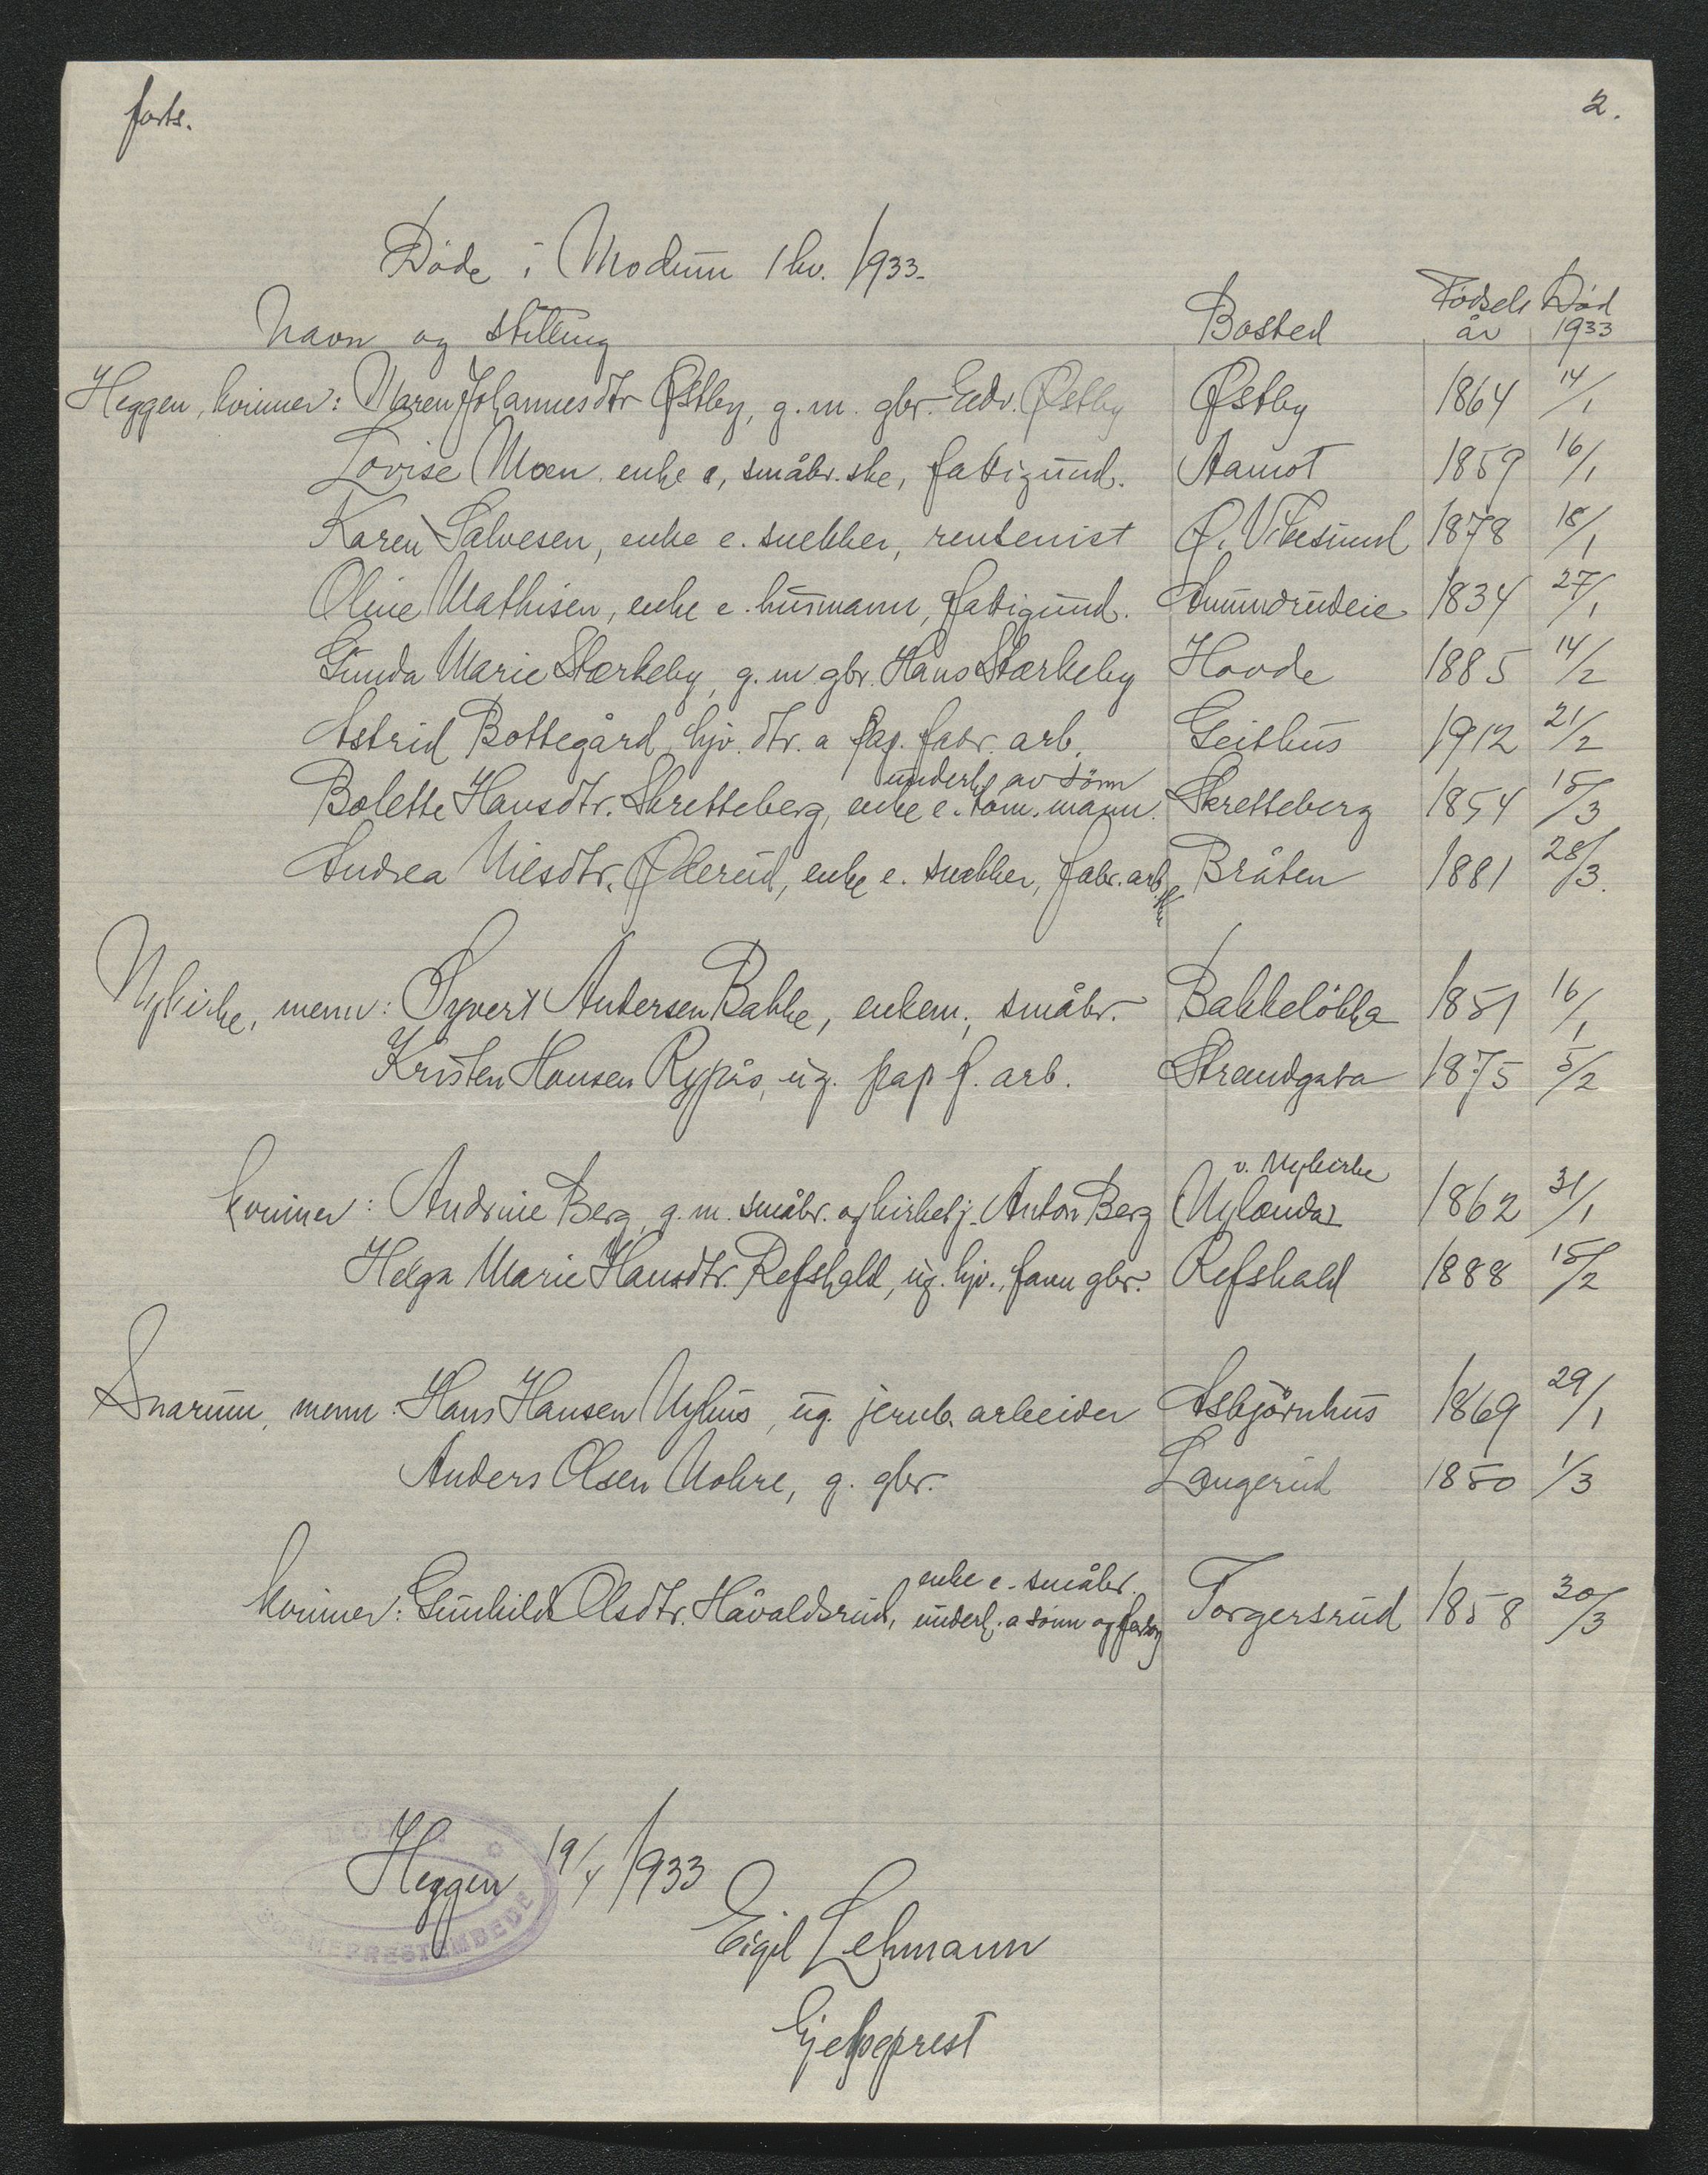 forts. 2.
Døde i Modum 1 kv. 1933.
Navn og stilling Bosted Fødsels år Død 1933
Heggen, kvinner: Maren Johannesdtr Østby, g. m. gbr. Edv. Østby Østby 1864 14/1
Lovise Moen enke e, småbr.ske, fattigund. Aamot 1859 16/1
Karen Salvesen, enke e. snekker, rentenist Ø. Vikesund 1878 18/1
Oline Mathisen, enke e. husmann, fattigund. Amundrudeie 1834 27/1
Gunda Marie Stærkeby, g. m. gbr. Hans Stærkeby Hovde 1885 14/2
Astrid Bottegård hjv. dtr. a pap. fabr. arb. Geithus 1912 21/2
Bolette Hansdtr. Skretteberg, enke e. töm. mann. underh. av sönn Skretteberg 1854 15/3
Andrea Nilsdtr. Ødeund, enke e. snekker, fabr. arb.ske Bråten 1881 28/3.
Nykirke, menn: Syvert Andersen Bakke, enkem., småbr. Bakkelökka 1851 16/1
Kristen Hansen Rypås, ug. pap f. arb. Strandgata 1875 5/2
kvinner: Andrine Berg, g. m. småbr. og kirketj. Anton Berg Nylænda v. Nykirke 1862 31/1
Helga Marie Hansdtr. Refshald, ug. hjv., fam gbr. Refshald 1888 15/2
Snarum, menn: Hans Hansen Nyhus, ug. jernb. arbeider Asbjörnhus 1869 29/1
Anders Olsen Mohre, g. gbr. Langerud 1850 1/3
kvinner: Gunhild Olsdtr. Håvaldsrud, enke e. småbr. underh. a sönn og Torgersrud 1858 30/3
Heggen 19/4 1933
Eigil Lehmann
hjelpeprest